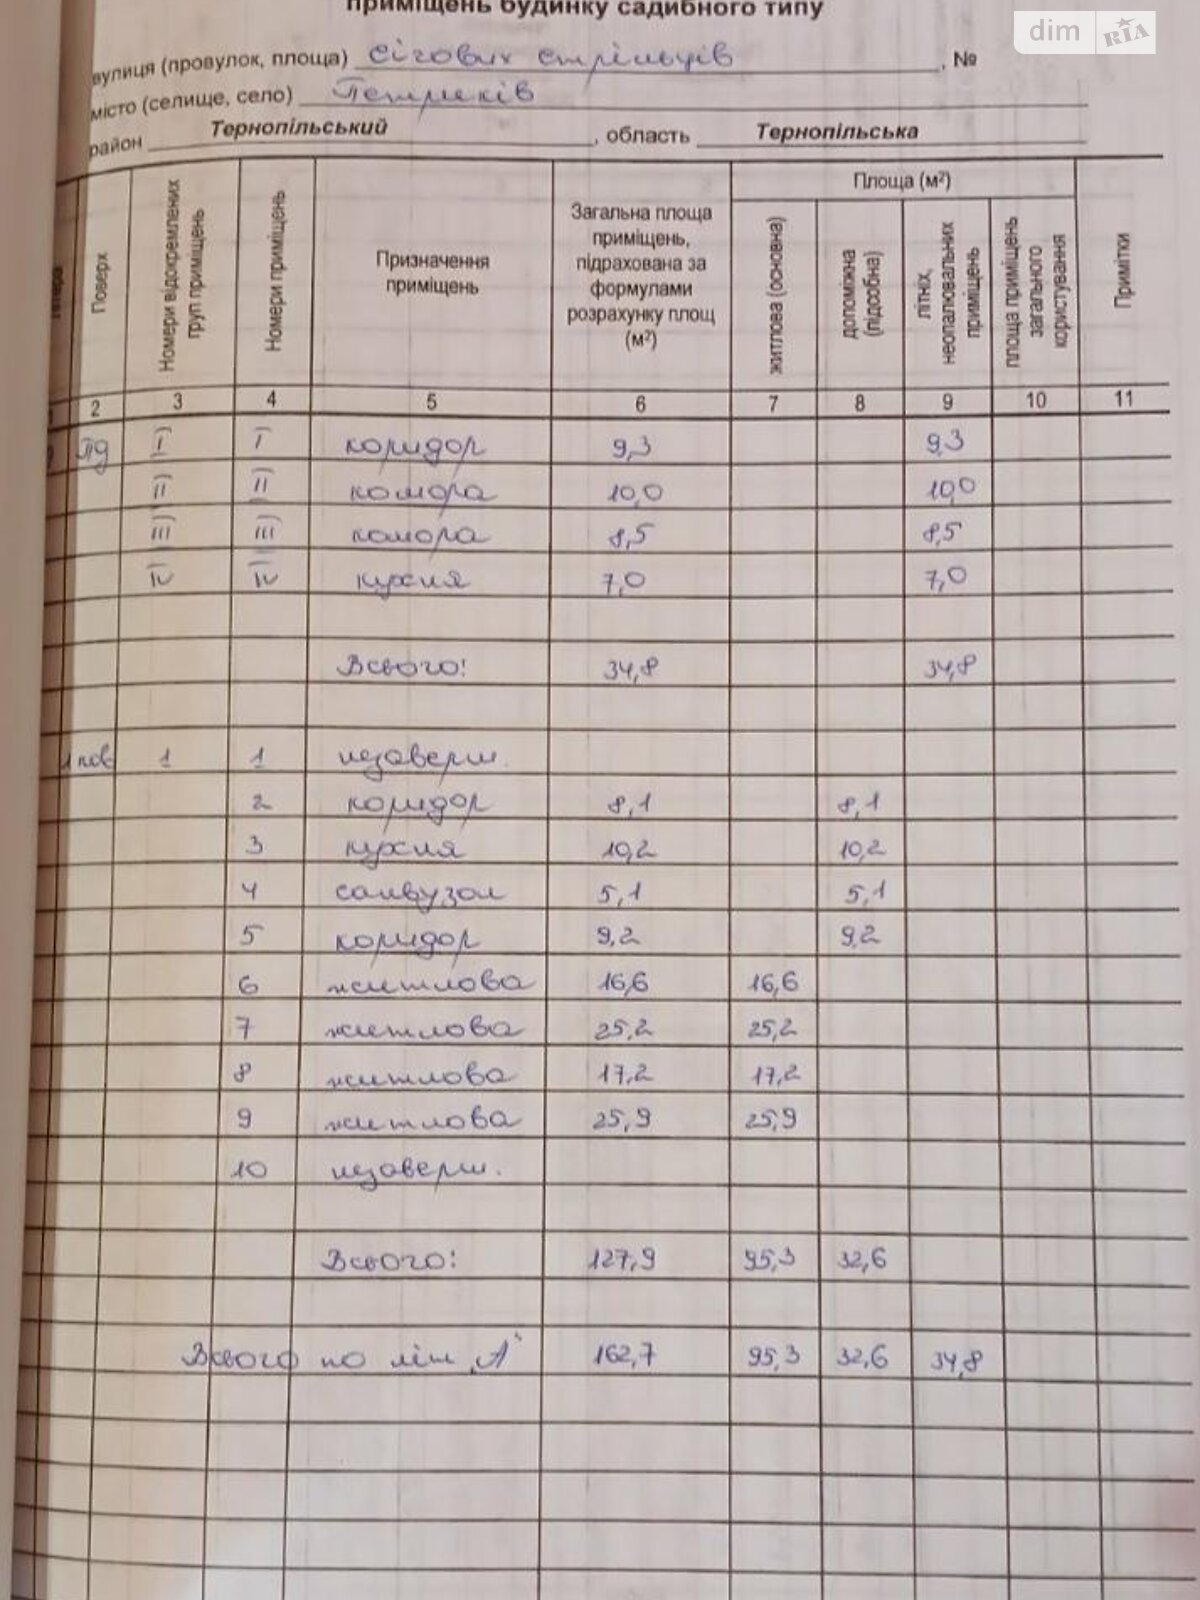 приміщень будинку садибного типу
dim RIA
вулиця (провулок, площа) Січових стрільців, №
місто (селище, село) Петриків
район Тернопільський, область Тернопільська
Поверх
Номери відокремлених груп приміщень
Номери приміщень
Призначення приміщень
Загальна площа приміщень, підрахована за формулами розрахунку площ (м²)
Площа (м²)
житлова (основна)
допоміжна (підсобна)
літніх, неопалювальних приміщень
площа приміщень загального користування
Примітки
2 3 4 5 6 7 8 9 10 11
пд I I коридор 9,3 9,3
II II комора 10,0 10,0
III III комора 8,5 8,5
IV IV кухня 7,0 7,0
Всього: 34,8 34,8
1 пов 1 1 незаверш.
2 коридор 8,1 8,1
3 кухня 10,2 10,2
4 санвузол 5,1 5,1
5 коридор 9,2 9,2
6 житлова 16,6 16,6
7 житлова 25,2 25,2
8 житлова 17,2 17,2
9 житлова 25,9 25,9
10 незаверш.
Всього: 127,9 95,3 32,6
Всього по літ „А" 162,7 95,3 32,6 34,8